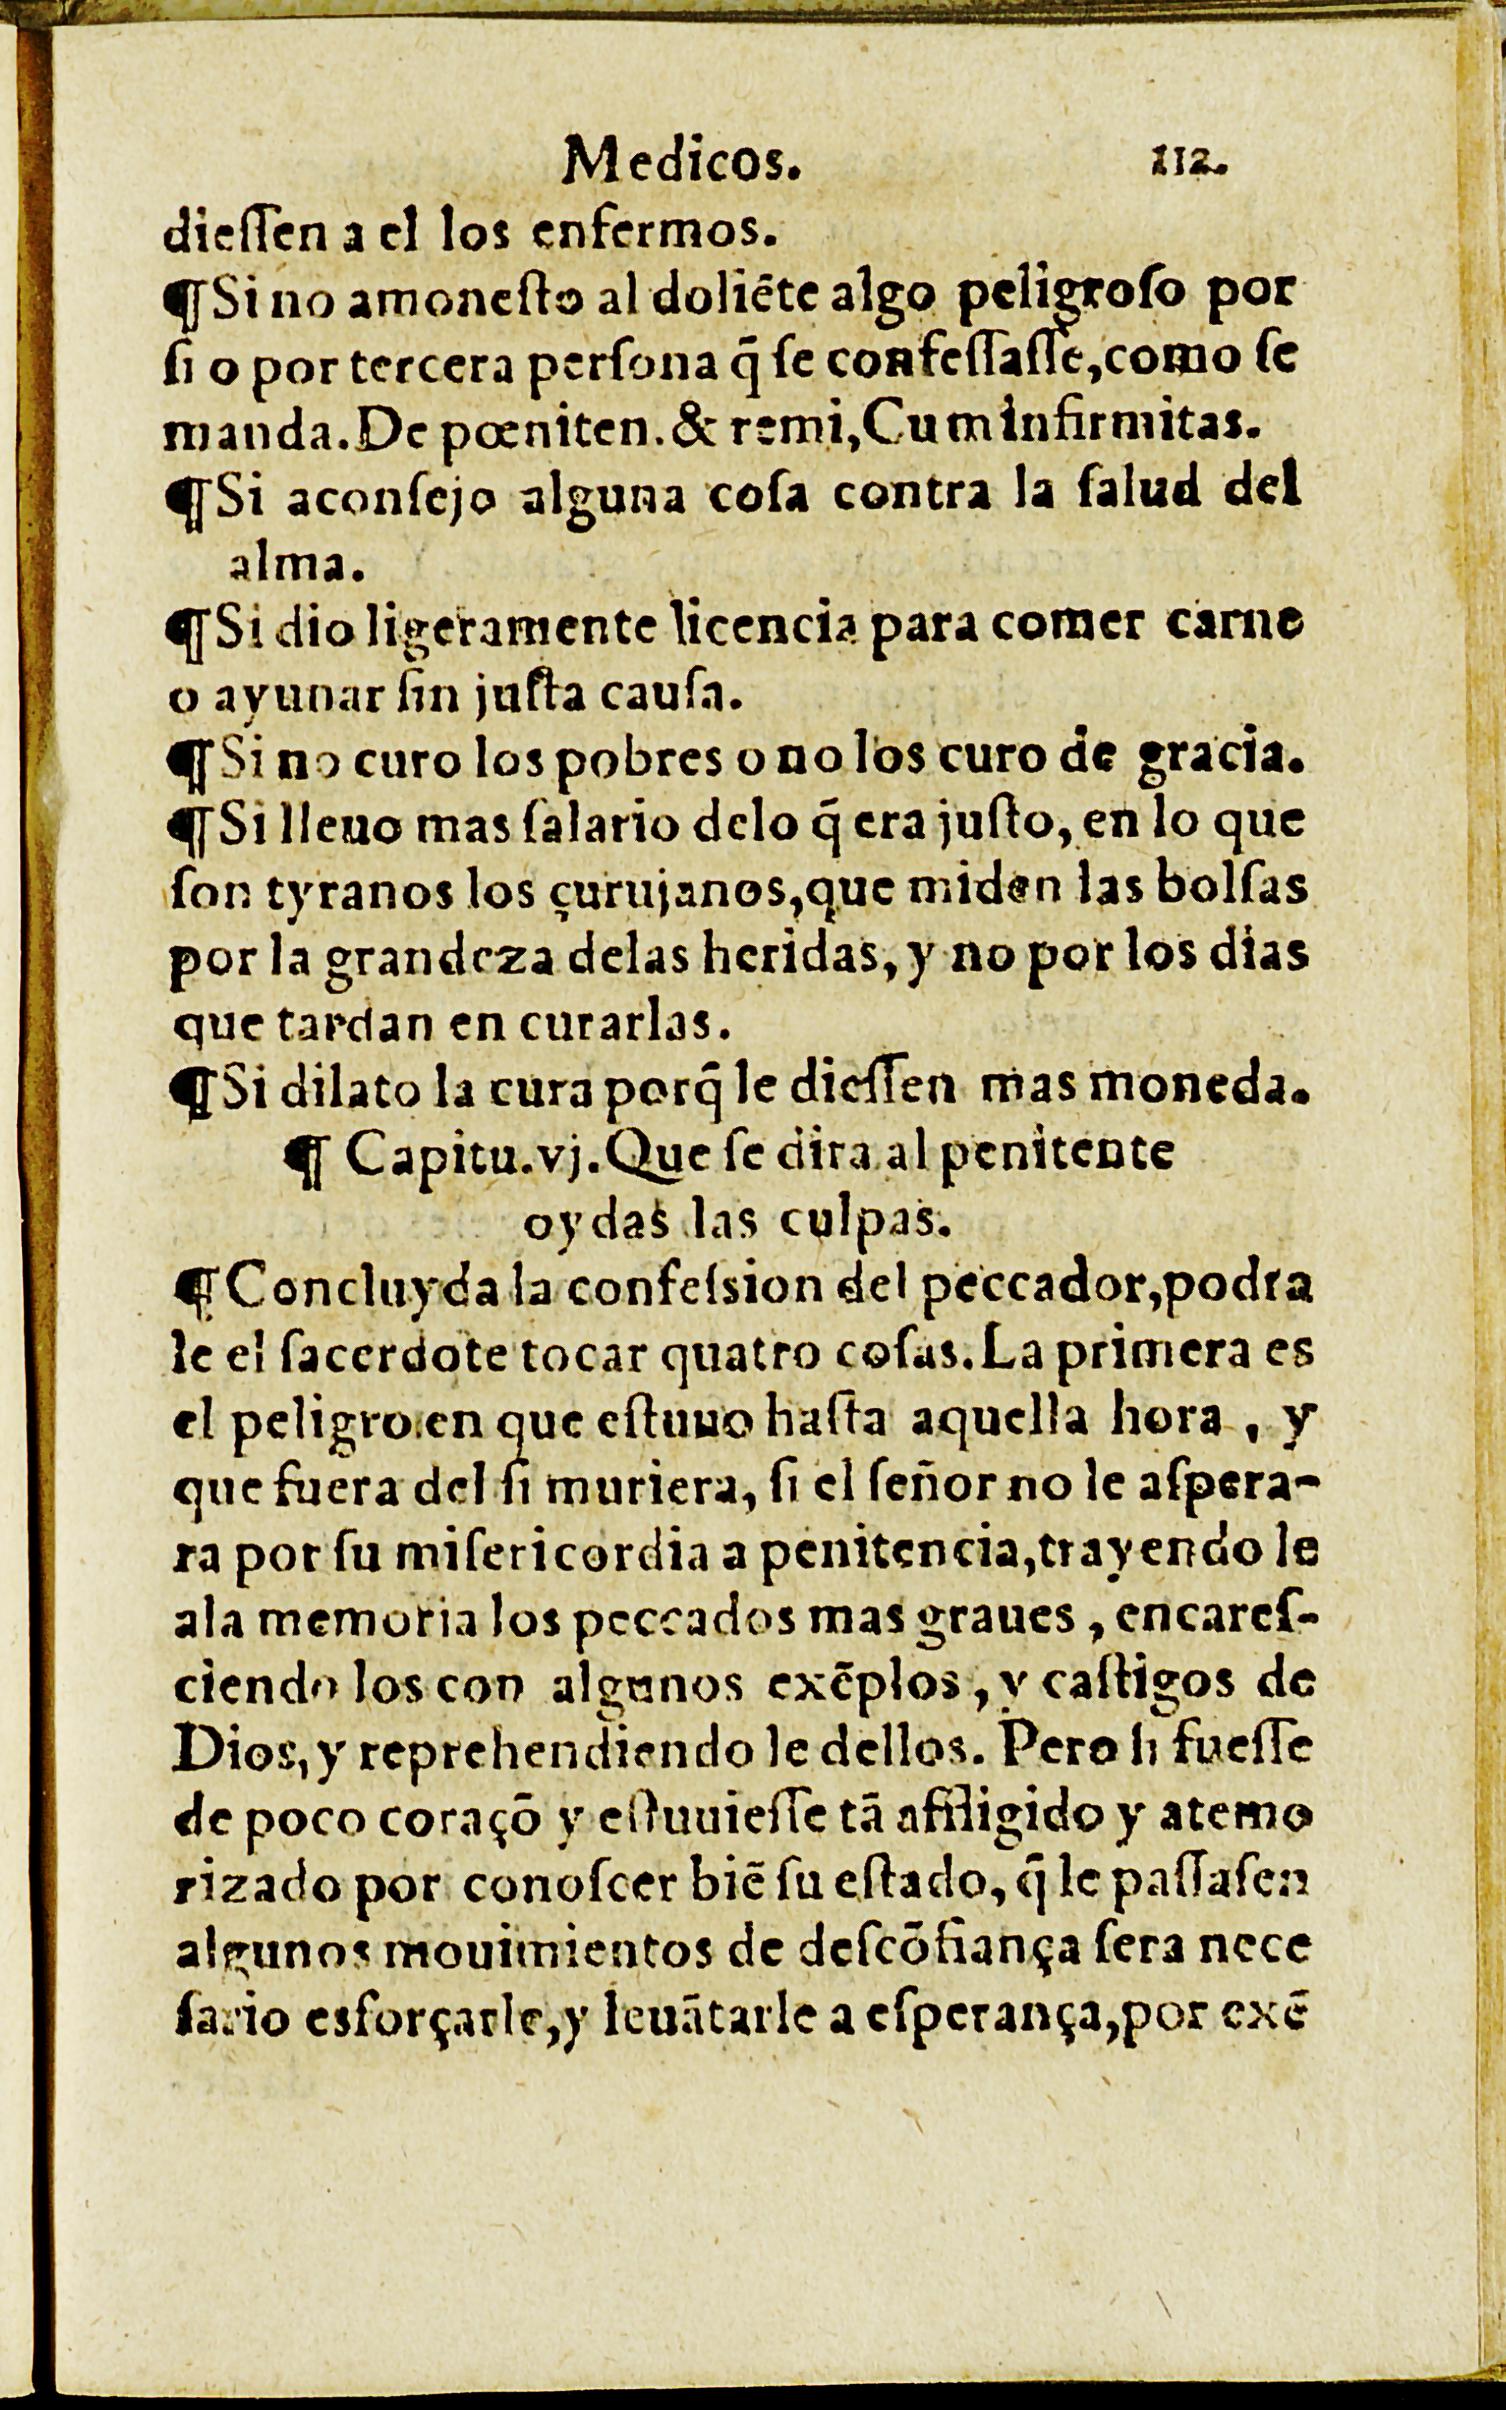 Medicos. 112.
dieſſen a el los enfermos.
¶ Si no amoneſto al doliēte algo peligroſo por
ſi o por tercera perſona q̄ ſe confeſſaſſe, como ſe
manda. De pœniten. & remi, Cum infirmitas.
¶ Si aconſejo alguna coſa contra la ſalud del
alma.
¶ Si dio ligeramente licencia para comer carne
o ayunar ſin juſta cauſa.
¶ Si no curo los pobres o no los curo de gracia.
¶ Si lleuo mas ſalario delo q̄ era juſto, en lo que
ſon tyranos los çurujanos, que miden las bolſas
por la grandeza delas heridas, y no por los dias
que tardan en curarlas.
¶ Si dilato la cura porq̄ le dieſſen mas moneda.
¶ Capitu. vj. Que ſe dira al penitente
oydas las culpas.
¶ Concluyda la confeſsion del peccador, podra
le el ſacerdote tocar quatro coſas. La primera es
el peligro en que eſtuuo haſta aquella hora, y
que fuera del ſi muriera, ſi el ſeñor no le aſpera-
ra por ſu miſericordia a penitencia, trayendo le
ala memoria los peccados mas graues, encareſ-
ciendo los con algunos exēplos, y caſtigos de
Dios, y reprehendiendo le dellos. Pero ſi fueſſe
de poco coraçō y eſtuuieſſe tā affligido y atemo
rizado por conoſcer biē ſu eſtado, q̄ le paſſaſen
algunos mouimientos de deſcōfiança ſera nece
ſario esforçarle, y leuātarle a eſperança, por exē